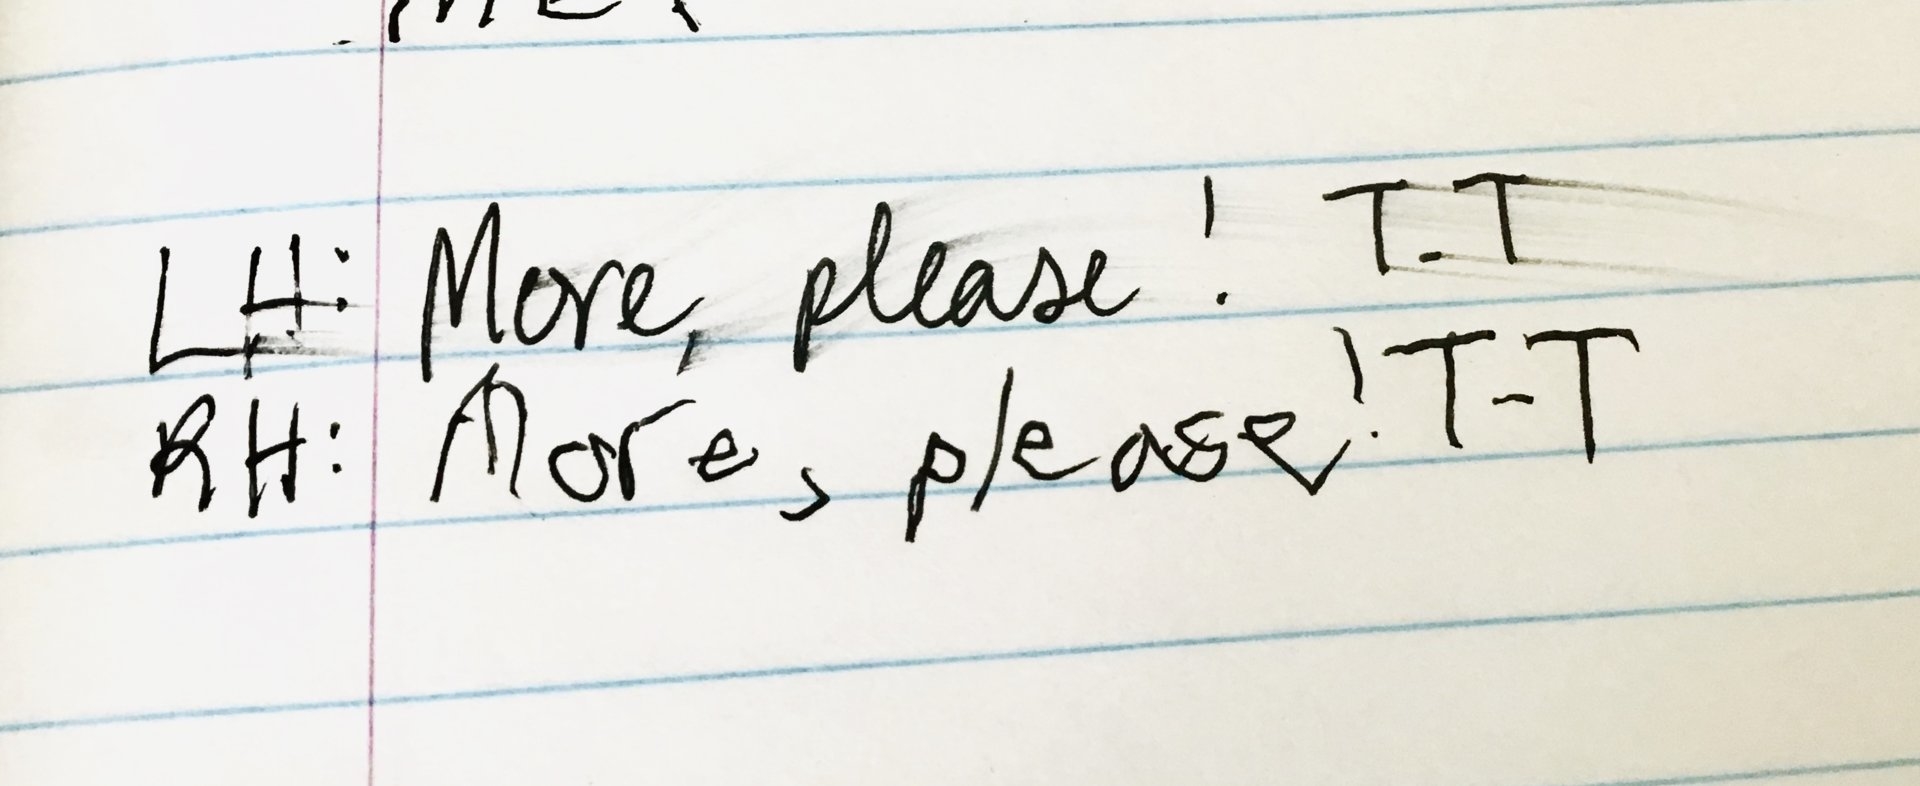 LH: More, please! T-T
RH: More, please! T-T